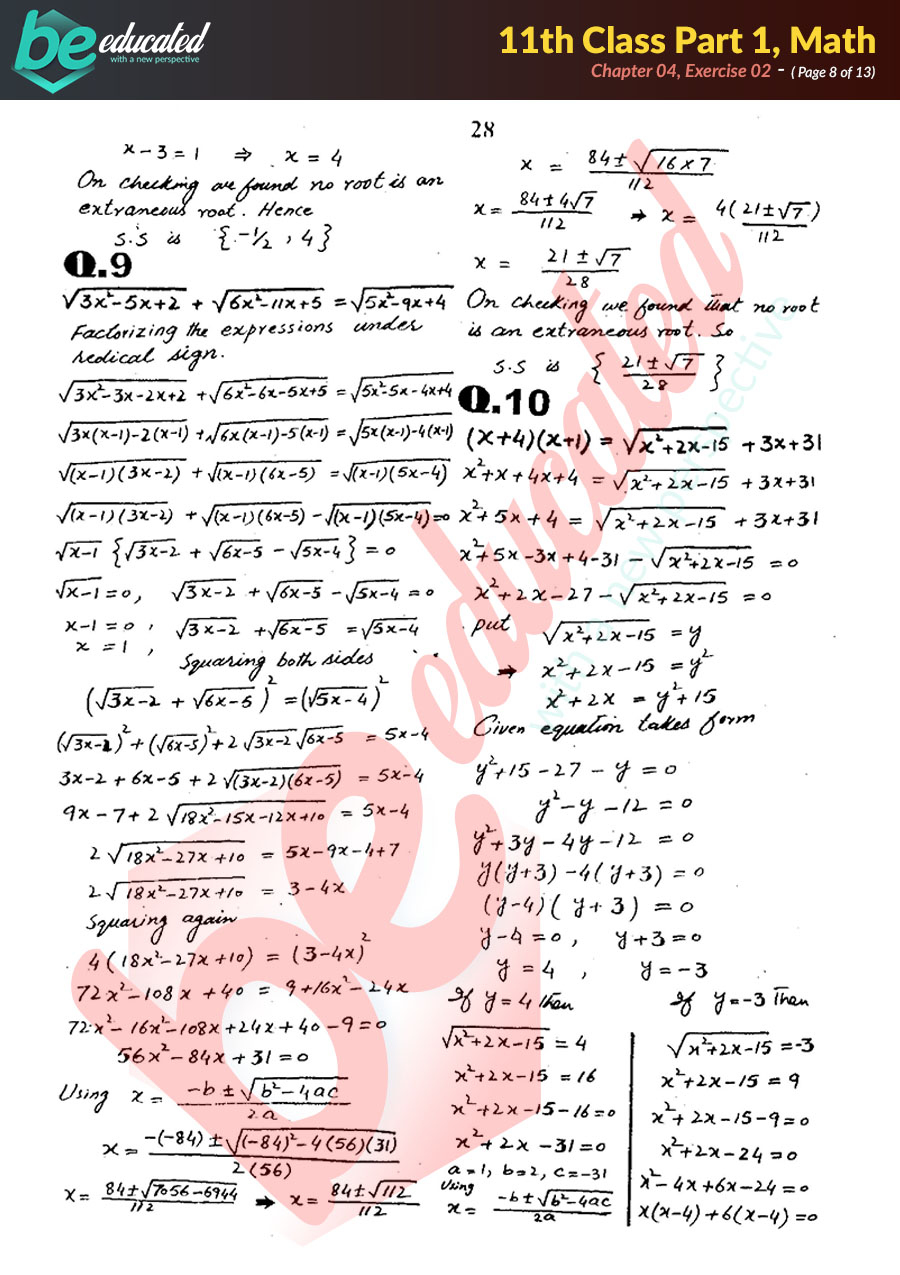 be educated
with a new perspective
11th Class Part 1, Math
Chapter 04, Exercise 02 - ( Page 8 of 13)
28
x-3=1 ⇒ x = 4
On checking we found no root is an
extraneous root. Hence
S.S is {-1/2 , 4}
Q.9
√(3x²-5x+2) + √(6x²-11x+5) = √(5x²-9x+4)
Factorizing the expressions under
redical sign.
√(3x²-3x-2x+2) + √(6x²-6x-5x+5) = √(5x²-5x-4x+4)
√(3x(x-1)-2(x-1)) + √(6x(x-1)-5(x-1)) = √(5x(x-1)-4(x-1))
√((x-1)(3x-2)) + √((x-1)(6x-5)) = √((x-1)(5x-4))
√((x-1)(3x-2)) + √((x-1)(6x-5)) - √((x-1)(5x-4)) = 0
√(x-1) {√(3x-2) + √(6x-5) - √(5x-4)} = 0
√(x-1) = 0, √(3x-2) + √(6x-5) - √(5x-4) = 0
x-1 = 0 , √(3x-2) + √(6x-5) = √(5x-4)
x = 1 ,
Squaring both sides
(√(3x-2) + √(6x-5))² = (√(5x-4))²
(√(3x-2))² + (√(6x-5))² + 2 √(3x-2) √(6x-5) = 5x-4
3x-2 + 6x-5 + 2 √((3x-2)(6x-5)) = 5x-4
9x-7+2 √(18x²-15x-12x+10) = 5x-4
2 √(18x²-27x+10) = 5x-9x-4+7
2 √(18x²-27x+10) = 3-4x
Squaring again
4(18x²-27x+10) = (3-4x)²
72x²-108x+40 = 9+16x²-24x
72x²-16x²-108x+24x+40-9=0
56x²-84x+31=0
Using x = (-b ± √(b²-4ac))/2a
x = (-(-84) ± √((-84)²-4(56)(31)))/2(56)
x = (84±√(7056-6944))/112 ⇒ x = (84±√112)/112
x = (84±√(16×7))/112
x = (84±4√7)/112 ⇒ x = 4(21±√7)/112
x = (21±√7)/28
On checking we found that no root
is an extraneous root. So
S.S is {(21±√7)/28}
Q.10
(x+4)(x+1) = √(x²+2x-15) + 3x+31
x²+x+4x+4 = √(x²+2x-15) + 3x+31
x²+5x+4 = √(x²+2x-15) + 3x+31
x²+5x-3x+4-31 - √(x²+2x-15) = 0
x²+2x-27 - √(x²+2x-15) = 0
put √(x²+2x-15) = y
⇒ x²+2x-15 = y²
x²+2x = y²+15
Given equation takes form
y²+15-27-y = 0
y²-y-12 = 0
y²+3y-4y-12 = 0
y(y+3)-4(y+3) = 0
(y-4)(y+3) = 0
y-4=0, y+3=0
y = 4 , y = -3
If y=4 then
√(x²+2x-15) = 4
x²+2x-15 = 16
x²+2x-15-16=0
x²+2x-31=0
a=1, b=2, c=-31
Using
x = (-b±√(b²-4ac))/2a
If y=-3 Then
√(x²+2x-15) = -3
x²+2x-15 = 9
x²+2x-15-9=0
x²+2x-24=0
x²-4x+6x-24=0
x(x-4)+6(x-4)=0
be educated
with a new perspective